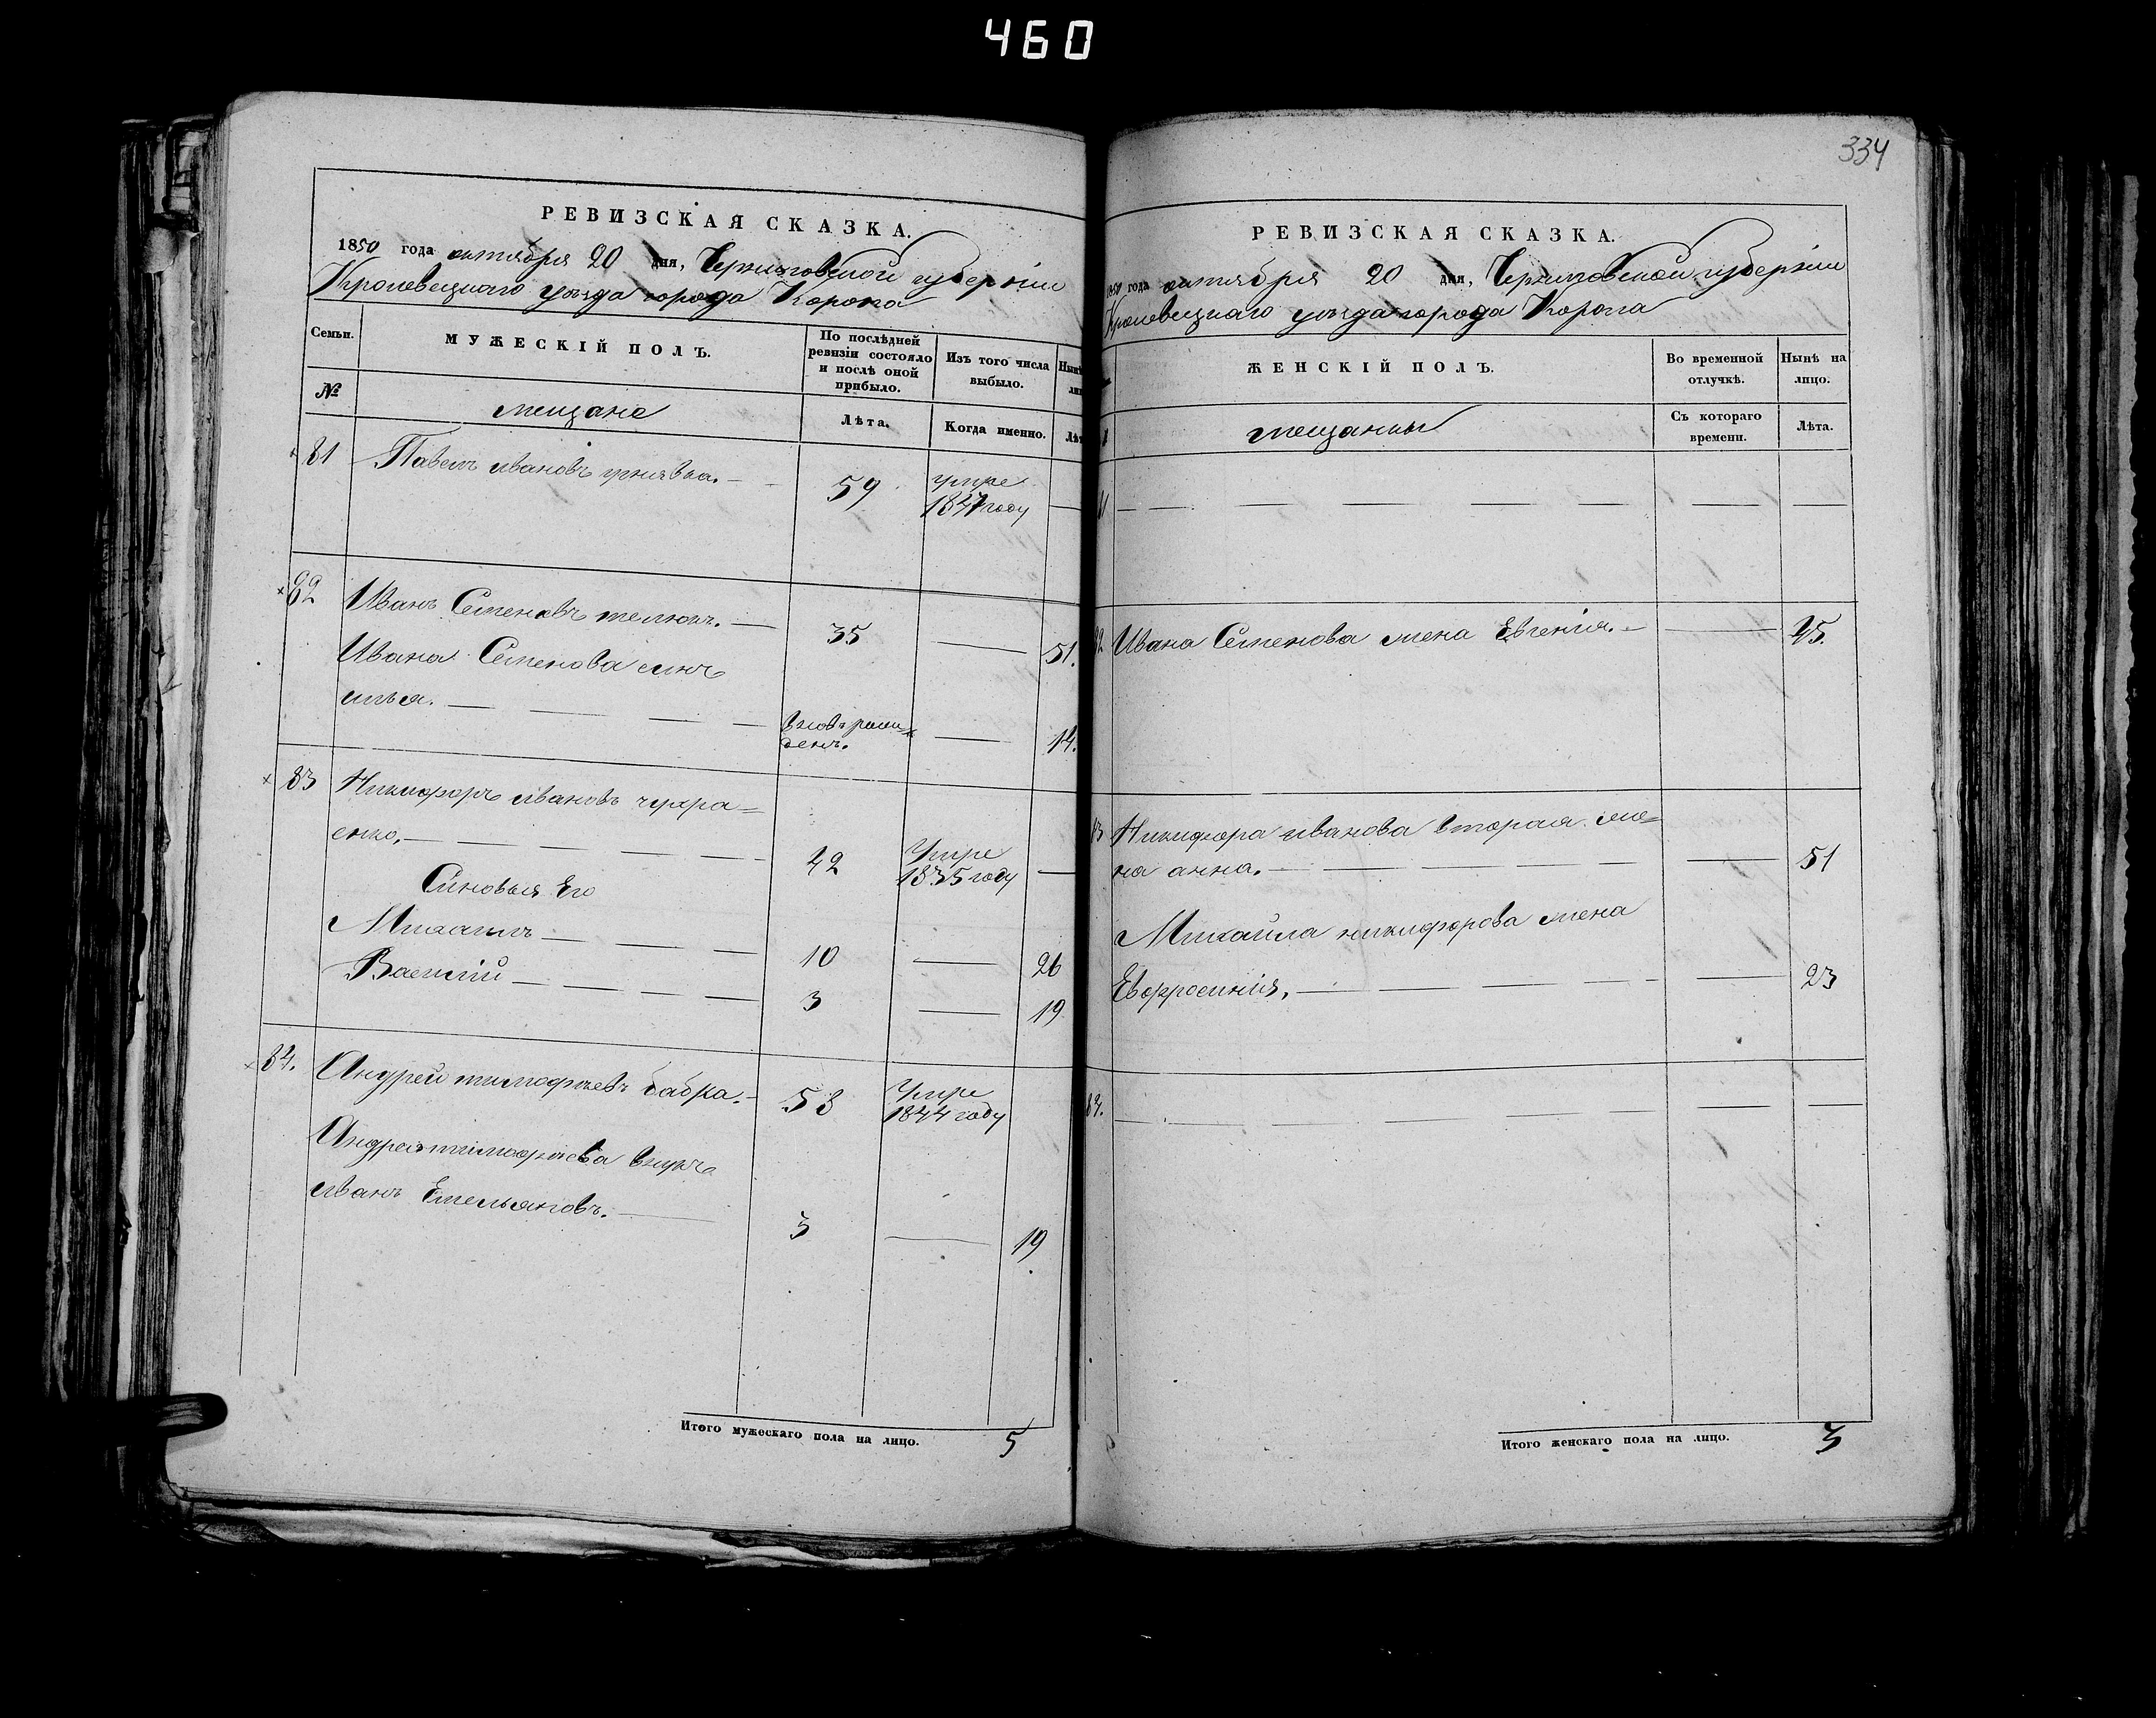 460
РЕВИЗСКАЯ СКАЗКА.
1850 года октября 20 дня, Черниговской губерніи
Кролевецкаго уѣзда города Коропа
Семьи. МУЖЕСКІЙ ПОЛЪ. По послѣдней ревизіи состояло и послѣ оной прибыло. Изъ того числа выбыло. Нынѣ
№ мещане Лѣта. Когда именно. Лѣт
81 Павелъ ивановъ 59 умре 1847 году —
82 Иванъ Семеновъ 35 — 51.
Ивана Семенова синъ
илья. — вновь рожденъ. — 14.
83 Никифоръ ивановъ
енко. — 42 Умре 1835 году —
Синовья Его
Михаилъ — 10 — 26
Василій — 3 — 19
84. Андрей тимофѣевъ бабка. 58 Умре 1844 году
Андрея тимофѣева внукъ
иванъ Емельяновъ. — 3 — 19
Итого мужескаго пола на лицо. 5
334
РЕВИЗСКАЯ СКАЗКА.
1850 года октября 20 дня, Черниговской губерніи
Кролевецкаго уѣзда города Коропа
ЖЕНСКІЙ ПОЛЪ. Во временной отлучкѣ. Нынѣ на лицо.
мещанки Съ котораго времени. Лѣта.
82 Ивана Семенова жена Евгенія. — 45.
83 Никифора иванова вторая же=
на анна. — 51
Михаила никифорова жена
Евфросинія. — 23
84. —
Итого женскаго пола на лицо. 3